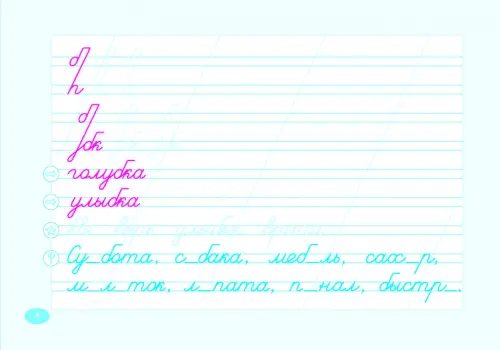 бк
голубка
улыбка
Су_бота, с_бака, меб_ль, сах_р,
м_л_ток, л_пата, п_нал, быстр_.